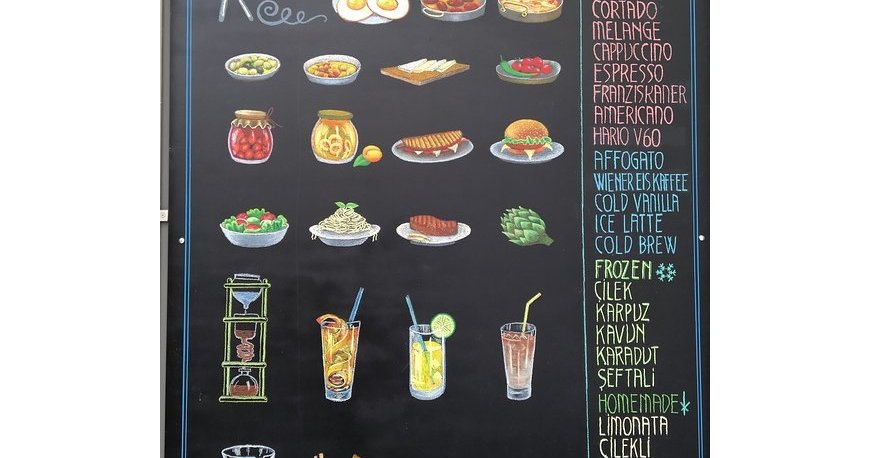 CORTADO
MELANGE
CAPPUCCINO
ESPRESSO
FRANZISKANER
AMERICANO
HARIO V60
AFFOGATO
WIENER EISKAFFEE
COLD VANILLA
ICE LATTE
COLD BREW
FROZEN
ÇİLEK
KARPUZ
KAVUN
KARADUT
ŞEFTALİ
HOMEMADE
LİMONATA
ÇİLEKLİ